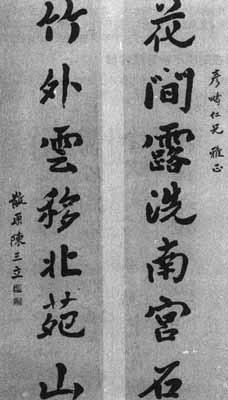 彥疇仁兄 雅正
花間露洗南宮石
竹外雲移北苑山
散原陳三立